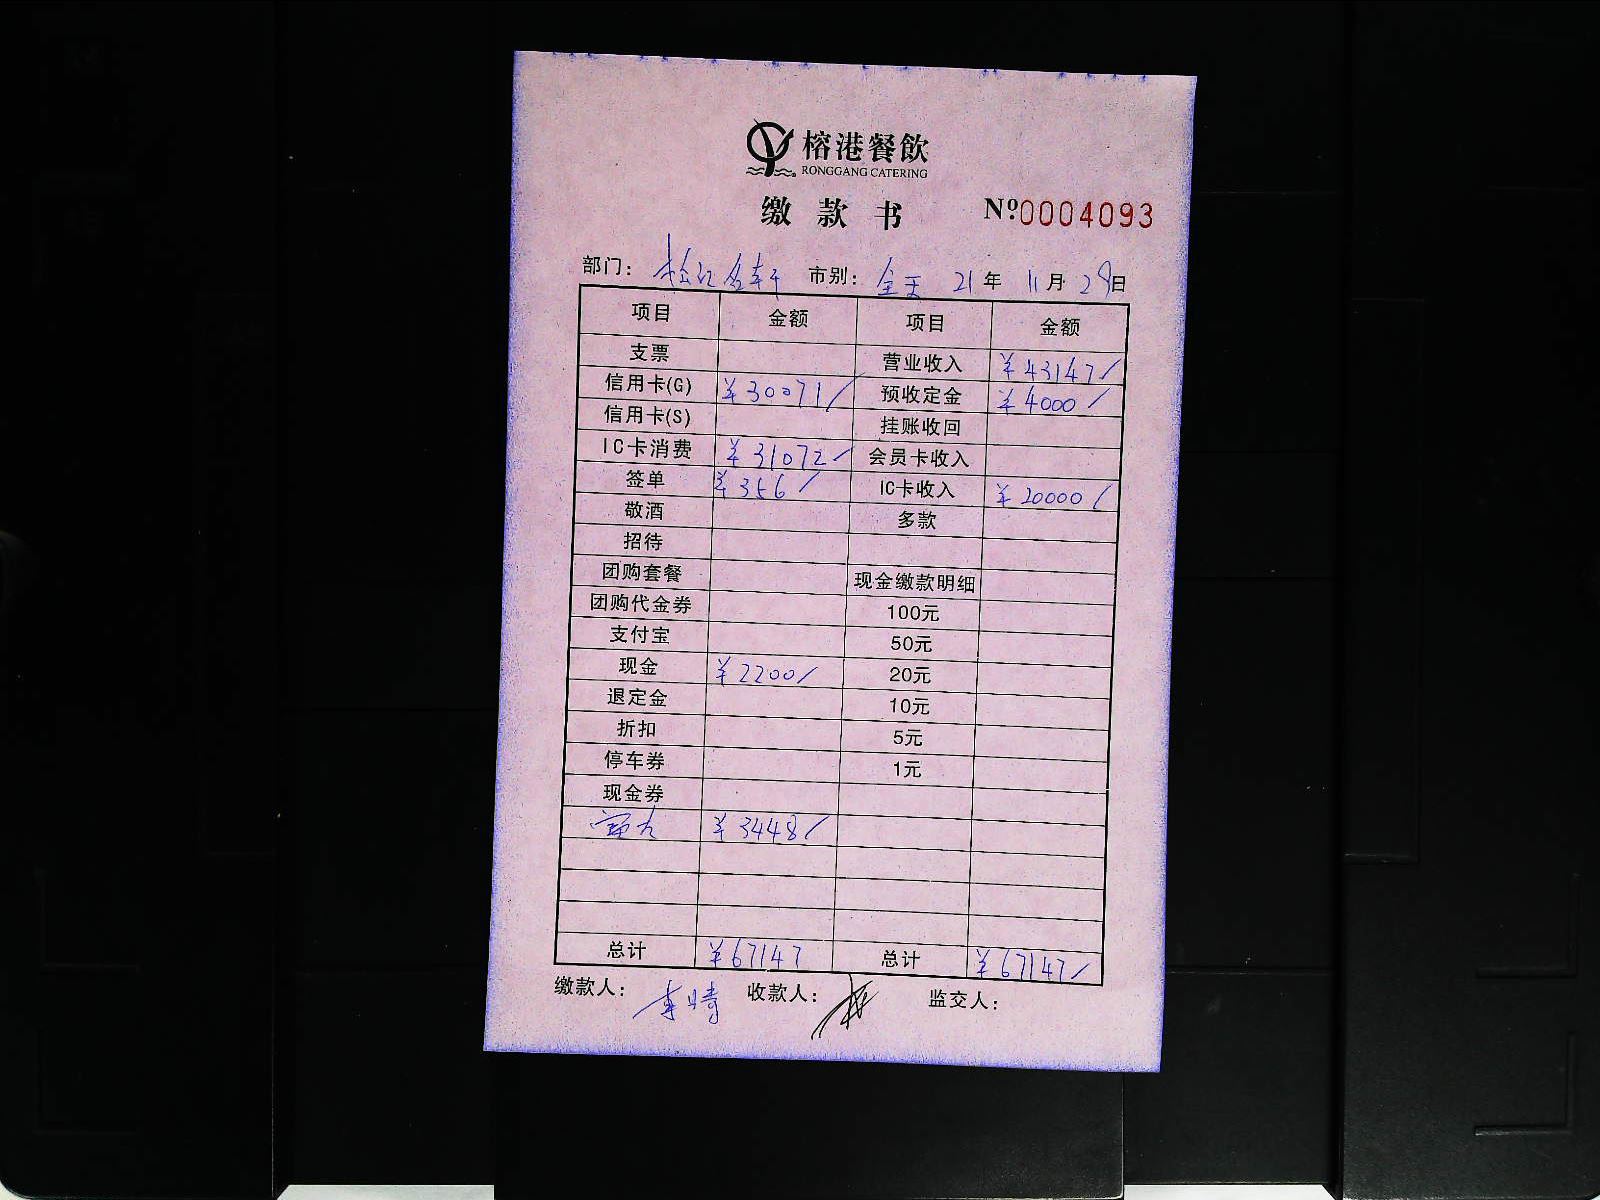 榕港餐飲
RONGGANG CATERING
缴款书 Nº0004093
部门: 松江名轩 市别: 全天 21年 11月 29日
项目 金额 项目 金额
支票 营业收入 ¥43147/
信用卡(G) ¥30071/ 预收定金 ¥4000/
信用卡(S) 挂账收回
IC卡消费 ¥31072/ 会员卡收入
签单 ¥356/ IC卡收入 ¥20000/
敬酒 多款
招待
团购套餐 现金缴款明细
团购代金券 100元
支付宝 50元
现金 ¥2200/ 20元
退定金 10元
折扣 5元
停车券 1元
现金券
¥3448/
总计 ¥67147 总计 ¥67147/
缴款人: 李晴 收款人: 监交人: